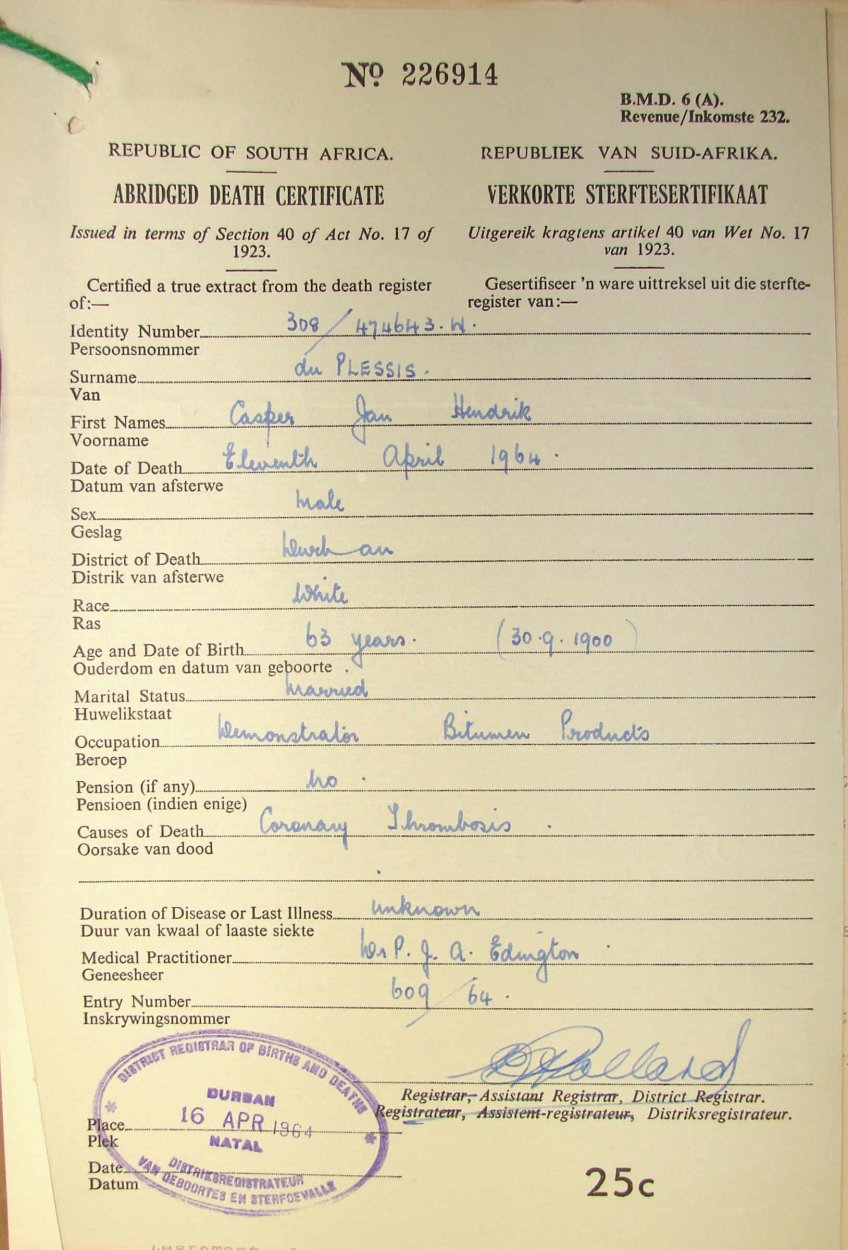 No 226914
B.M.D. 6 (A).
Revenue/Inkomste 232.
REPUBLIC OF SOUTH AFRICA.
ABRIDGED DEATH CERTIFICATE
Issued in terms of Section 40 of Act No. 17 of
1923.
Certified a true extract from the death register
of:—
REPUBLIEK VAN SUID-AFRIKA.
VERKORTE STERFTESERTIFIKAAT
Uitgereik kragtens artikel 40 van Wet No. 17
van 1923.
Gesertifiseer 'n ware uittreksel uit die sterfte-
register van:—
Identity Number 308/474643.W.
Persoonsnommer
Surname du PLESSIS.
Van
First Names Casper Jan Hendrik
Voorname
Date of Death Eleventh April 1964.
Datum van afsterwe
Sex Male
Geslag
District of Death Durban
Distrik van afsterwe
Race White
Ras
Age and Date of Birth 63 years. (30.9.1900)
Ouderdom en datum van geboorte
Marital Status Married
Huwelikstaat
Occupation Demonstrator Bitumen Products
Beroep
Pension (if any) No.
Pensioen (indien enige)
Causes of Death Coronary Thrombosis.
Oorsake van dood
Duration of Disease or Last Illness unknown
Duur van kwaal of laaste siekte
Medical Practitioner Dr P. J. A. Edington
Geneesheer
Entry Number 609/64.
Inskrywingsnommer
Registrar, Assistant Registrar, District Registrar.
Registrateur, Assistent-registrateur, Distriksregistrateur.
DISTRICT REGISTRAR OF BIRTHS AND DEATHS
DURBAN
16 APR 1964
NATAL
DISTRIKSREGISTRATEUR
VAN GEBOORTES EN STERFGEVALLE
Place
Plek
Date
Datum
25c